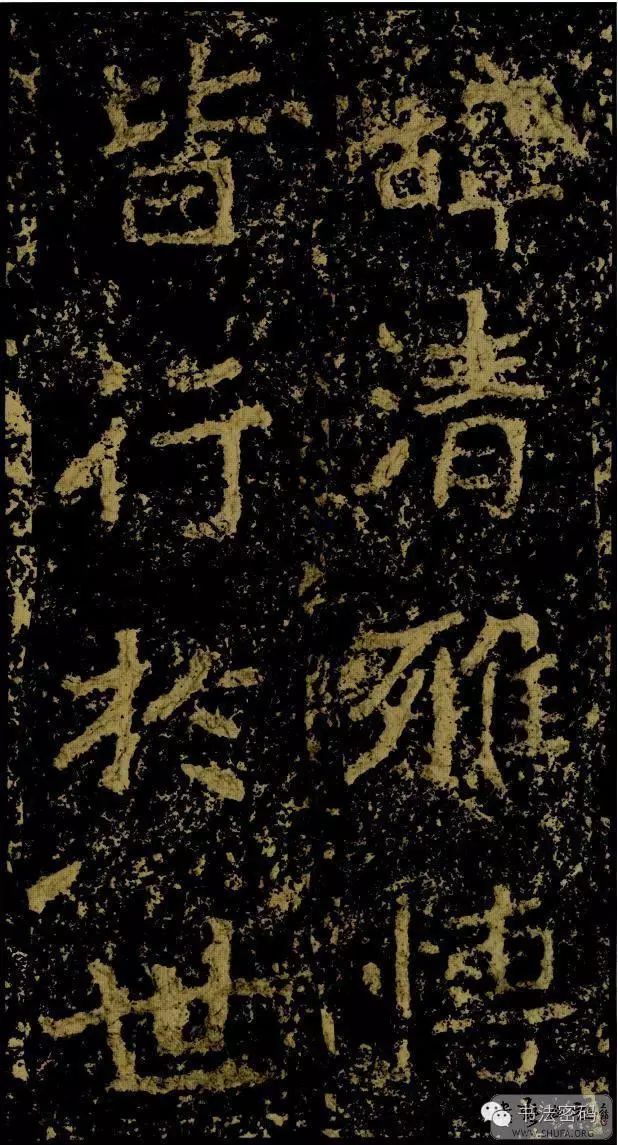 辭清雅博
皆行於世
书法密码
WWW.SHUFA.ORG